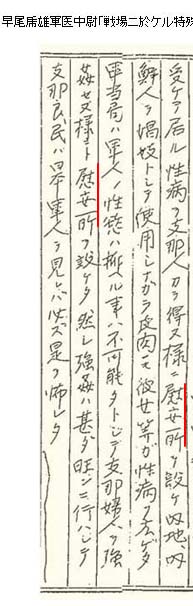 早尾乕雄軍医中尉「戦場ニ於ケル特殊
受ケテ居ル性病ヲ支那人カラ得ス様ニ慰安所ヲ設ケ内地、内
鮮人ヲ娼妓トシテ使用シナガラ皮肉ニモ彼女等が性病ヲ広ゲタ
軍当局ハ軍人ノ性慾ハ抑ヘル事ハ不可能ダトシテ支那婦人ヲ強
姦セヌ様ニト慰安所ヲ設ケタ然シ強姦ハ甚ダ旺ンニ行ハレテ
支那良民ハ日本軍人ヲ見レバ必ズ是ヲ怖レタ